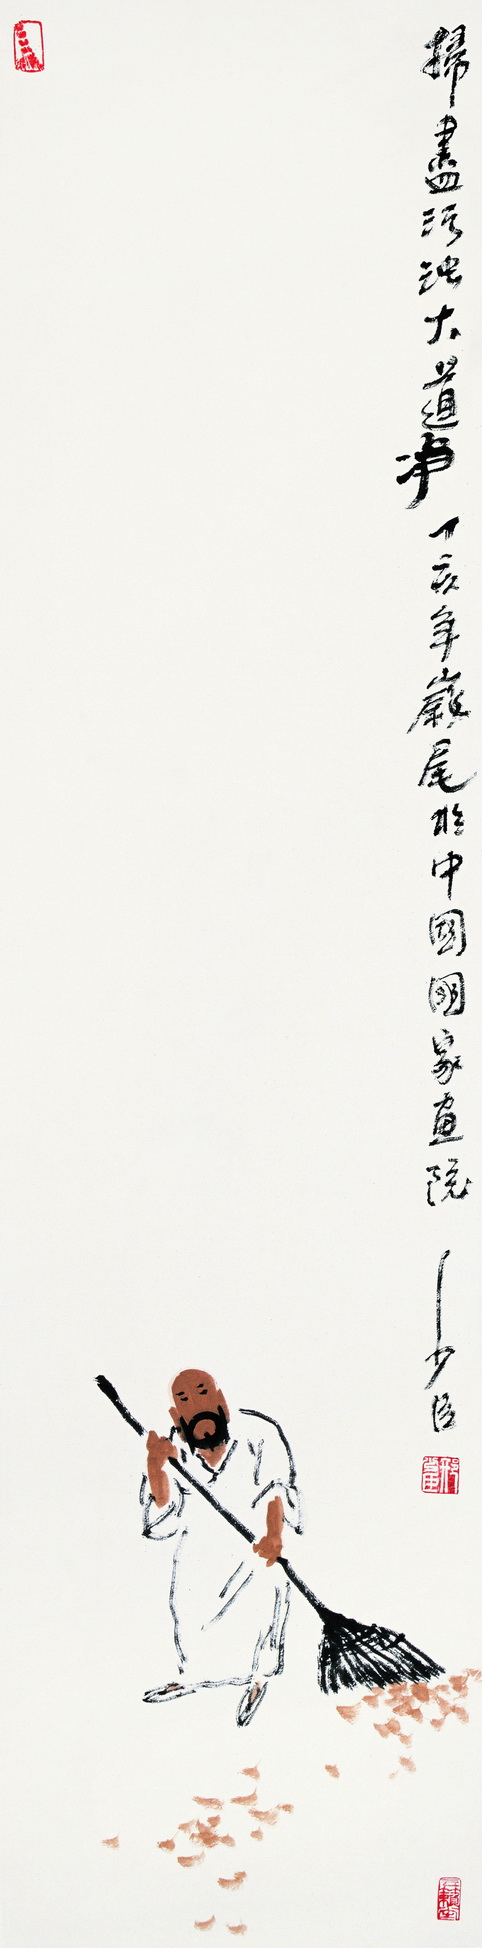 掃盡污浊大道净丁亥年嵗尾於中國國家画院少臣